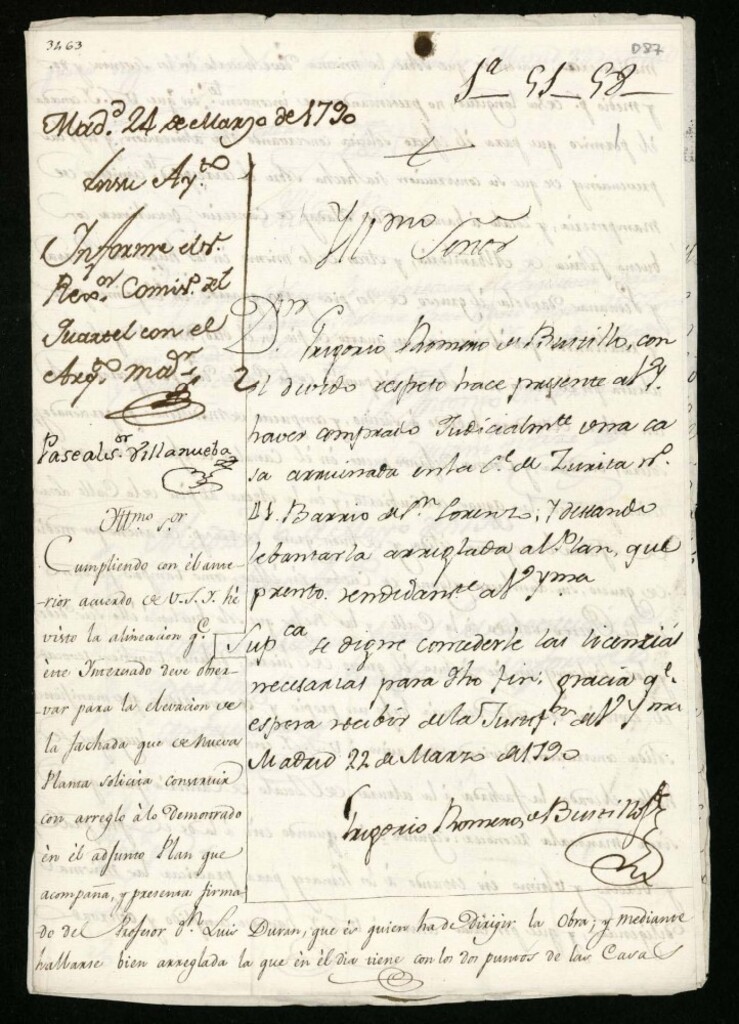 3463
D87
1ª 51 58
Mad.d 24 de Marzo de 1790
En su Ay.to
Informe el s.r
Rex.or Comis.o del
Quartel con el
Arq.o ma.r
Pase al s.or Villanueba
Yllmo s.or
Cumpliendo con el ante-
rior acuerdo de V.S.I. hé
visto la alineacion q.e
éste Interesado deve obser-
var para la elevacion de
la fachada que de nueva
Planta solicita construir
con arreglo à lo Demostrado
en el adjunto Plan que
acompaña, y presenta firma-
do del Profesor d.n Luis Duran, que és quien ha de dirigir la Obra; y mediante
hallarse bien arreglada la que èn èl dia viene con los dos puntos de las Casas
Yllmo
Señor
D.n Grigorio Romero de Bustillo, con
el devido respeto hace presente a V.Y.
haver comprado Judicialm.te una ca
sa arruinada en la C.e de Zurita n.o
41. Barrio de S.n Lorenzo, Y deseando
lebantarla arreglada al Plan, que
presenta. rendidam.te a V.Y.ma
Sup.ca se digne concederle las licenzias
necesarias para dho fin, gracia q.e
espera recibir de la Justif.n de V.Y.ma
Madrid 22 de Marzo de 1790
Grigorio Romero de Bustillo